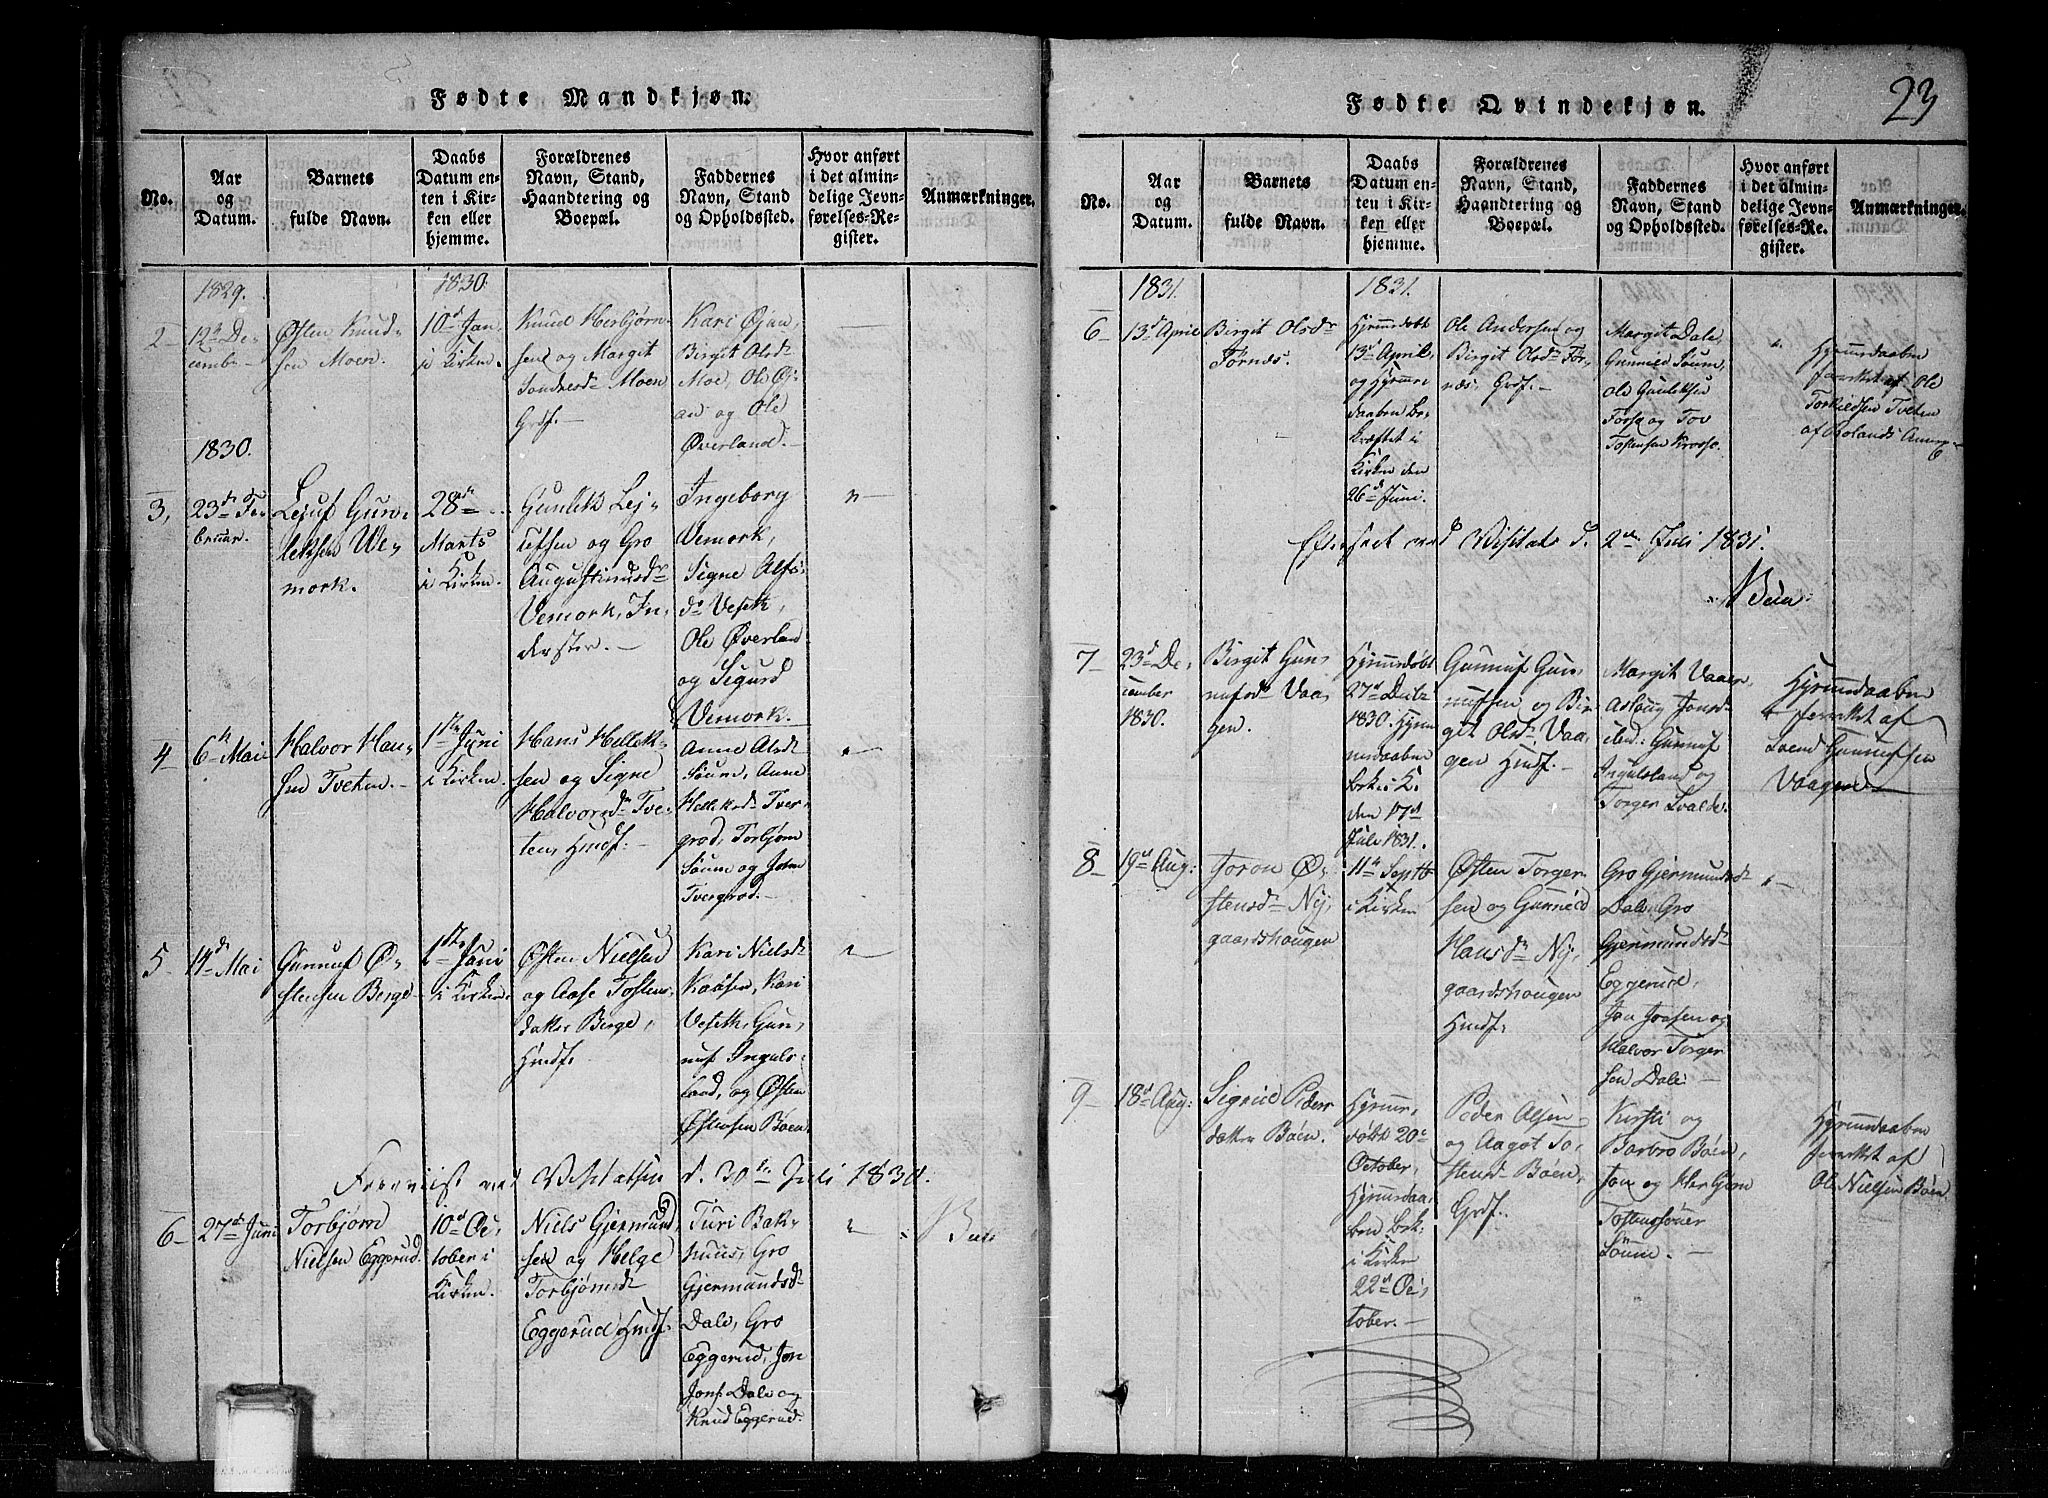 Fødte Mandkjøn.
No.
Aar
og
Datum.
Barnets
fulde Navn.
Daabs
Datum en-
ten i Kir-
ken eller
hjemme.
Forældrenes
Navn, Stand,
Haandtering og
Boepæl.
Faddernes
Navn, Stand
og Opholdssted.
Hvor anført
i det almin-
delige Jevn-
førelses-Re-
gister.
Anmærkninger.
1829.
1830
2
12te De-
cember
Østen Knud-
sen Moen.
10d Jan,
i Kirken.
Knud Herbjørn-
sen og Margit
Sondresd. Moen
Grdf.
Kari Øjan,
Birgit Olsd.
Moe, Ole Øj-
an og Ole
Øverland.
1830.
3,
23d Fe-
bruar.
Lejuf Gun-
leksen We-
mork.
28de
Marts
i Kirken.
Gunlek Lej-
ufsen og Gro
Augustinusdr
Vemork, In-
derster.
Ingeborg
Vemork,
Signe Alfs-
dr Veseth,
Ole Øverland
og Sigurd
Vemork.
4
6te Mai
Halvor Han-
sen Tveten.
1ste Juni
i Kirken
Hans Hellek-
sen og Signe
Halvorsdr Tve-
ten, Hmdf.
Anne Alsd.
Soum, Anne
Helleksd. Tver-
grod, Torbjørn
Soum og John
Tvergrod.
5
14d Mai
Gunnuf Ø-
stensen Berge
1ste Juni
i Kirken
Østen Nielsen
og Aase Tostens-
datter Berge,
Hmdf.
Kari Nielsd.
Kaasen, Kari
Veseth, Gun-
nuf Inguls-
land, og Østen
Østensen Bøen.
Foreviist ved Visitatsen d. 30te Juli 1830.
6
27d Juni
Torbjørn
Nielsen Eggerud.
10d Oc-
tober i
Kirken.
Niels Gjermund-
sen og Helge
Torbjørnsd.
Eggerud Hmdf.
Turi Bak-
huus, Gro
Gjermundsd.
Dale, Gro
Eggerud, Jon
Jonf. Dale og
Knud Eggerud.
23
Fødte Qvindekjøn.
No.
Aar
og
Datum.
Barnets
fulde Navn.
Daabs
Datum en-
ten i Kir-
ken eller
hjemme.
Forældrenes
Navn, Stand,
Haandtering og
Boepæl.
Faddernes
Navn, Stand
og Opholdssted.
Hvor anført
i det almin-
delige Jevn-
førelses-Re-
gister.
Anmærkninger.
1831.
1831.
6
13d April
Birgit Olsdr
Tørnes.
Hjemmedøbt
13d April,
og Hjemme
daaben be-
kræftet i
Kirken den
26d Juni.
Ole Andersen og
Birgit Olsdr Tør-
nes, Grdf.
Margit Dale,
Gunnild Soum,
Ole Gunleksen
og Tov
Tostensen
Hjemmedaaben
forrettet af Ole
Torkildsen Tveten
af
Efterseet ved Visitats d. 2den Juli 1831.
7
23d De-
cember
1830.
Birgit Gun-
nufsd. Vaa-
gen.
Hjemmedøbt
27d Decbr
1830. Hjem-
medaaben
bek. i K.
den 17d
Juli 1831.
Gunnuf Gun-
nufsen og Bir-
git Olsdr Vaa-
gen Hmdf.
Margit Vaaer,
Aslaug Jonsd.
ibid: Gunnuf
Ingulsland og
Torger Svalde.
Hjemmedaaben
forrettet af
Svend Gunnufsen
Vaagen
8
19d Aug:
Joron Ø-
stensdr Ny-
gaardshougen
11te Septb
i Kirken
Østen Torger-
sen og Gunnild
Hansdr Ny-
gaardshougen
Hmdf.
Gro Gjermundsd.
Dale, Gro
Gjermundsd.
Eggerud,
Jon Joosen og
Halvor Torger-
sen Dale
9
18d Aug:
Sigrid Peders-
datter Bøen.
Hjemme-
døbt 20de
October,
Hjemmedaa-
ben bek.
i Kirken
22d Oc-
tober.
Peder Olsen
og Aagot To-
stensd. Bøen,
Grdf.
Kirsti og
Barbro Bøen,
Jon og
Tostenssøner
Soum.
Hjemmedaaben
forrettet af
Ole Nielsen Bøen